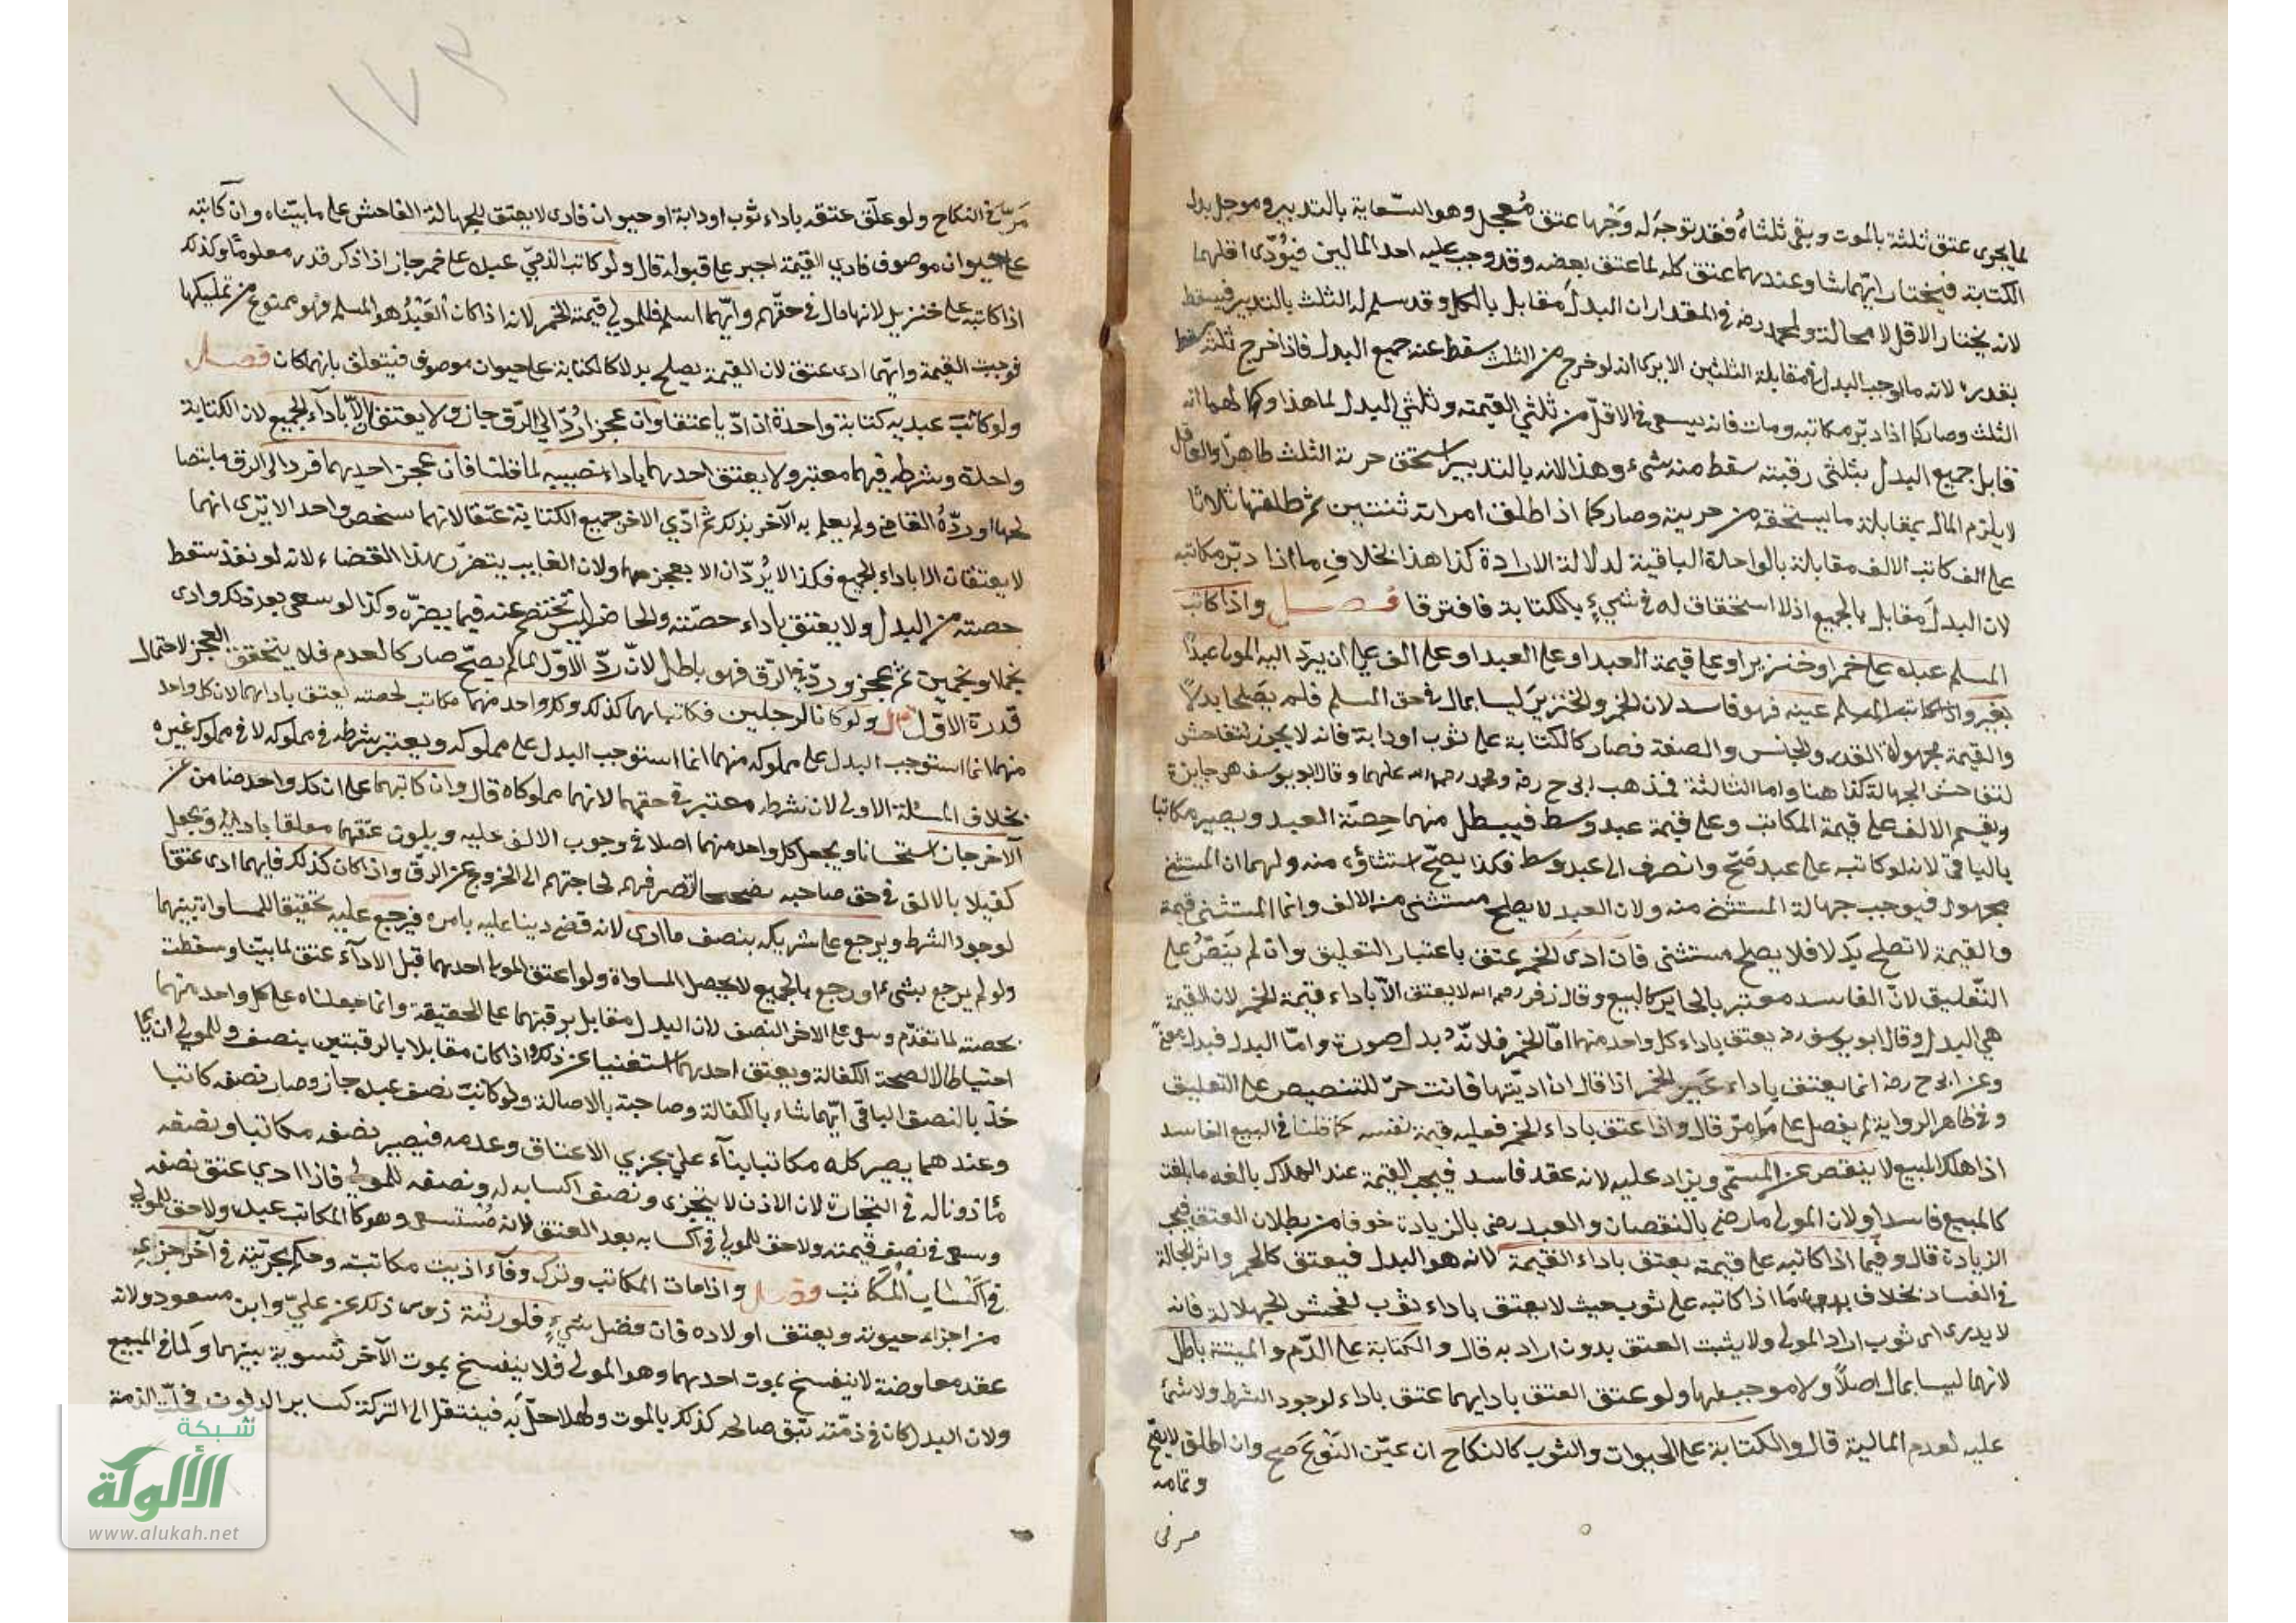 لما يجرى عتق ثلثه بالموت وبقي ثلثاه فقد توجه له وجها عتق مُعجل وهو السّعاية بالتدبير وموجل بدل
الكتابة فيختار ايهما شا وعندهما عتق كله لما عتق بعضه وقد وجب عليه احد المالين فيُؤدّى اقلهما
لانه يختار الاقل لا محالة ولمحمد رض في المقدار ان البدل مقابل بالكل وقد سلم له الثلث بالتدبير فيسقط
بقدره لانه ما اوجب البدل في مقابلة الثلثين الا يرى انه لو خرج من الثلث سقط عنه جميع البدل فاذا خرج ثلثه سقط
الثلث وصار كما اذا دبّر مكاتبه ومات فانه يسعى في الاقلّ من ثلثي القيمة وثلثي البدل لما هذا وكما لهما انه
قابل جميع البدل بثلثي رقبته سقط منه شيء وهذا لانه بالتدبير استحق حرية الثلث ظاهرا والعاقل
لا يلزم المال بمقابلة ما يستحقه من حريته وصار كما اذا طلق امراته ثنتين ثم طلقها ثلاثا
على الف كانت الالف مقابلة بالواحدة الباقية لدلالة الارادة كذا هذا بخلاف ما اذا دبّر مكاتبه
لان البدل مقابل بالجميع اذ لا استحقاق له في شيء بالكتابة فافترقا فصل واذا كاتب
المسلم عبده على خمر او خنزير او على قيمة العبد او على العبد او على الف على ان يردّ اليه المولى عبدا
بغير عينه فهو فاسد لان الخمر والخنزير ليسا بمال في حق المسلم فلم يصلحا بدلا
والقيمة مجهولة القدر والجنس والصفة فصار كالكتابة على ثوب او دابة فانه لا يجوز لتفاحش
لتفاحش الجهالة كذا هنا واما الثالثة فمذهب ابى ح رض ومحمد رحمة الله عليهما وقال ابو يوسف هي جايزة
ويقسم الالف على قيمة المكاتب وعلى قيمة عبد وسط فيبطل منهما حصّة العبد ويصير مكاتبا
بالباقي لانه لو كاتبه على عبد صحّ وانصرف الى عبد وسط فكذا يصحّ استثناؤه منه ولهما ان المستثنى
مجهول فيوجب جهالة المستثنى منه ولان العبد لا يصلح مستثنى من الالف وانما المستثنى قيمة
والقيمة لا تصلح بدلا فلا يصلح مستثنى فان ادى الخمر عتق باعتبار التعليق وان لم يَنصّ على
التعليق لانّ الفاسد معتبر بالجايز كالبيع وقال زفر رحمه الله لا يعتق الاّ باداء قيمة الخمر لان القيمة
هي البدل وقال ابو يوسف رض يعتق باداء كل واحد منهما امّا الخمر فلانّه بدل صورة وامّا البدل فبدل معنى
وعن ابى ح رض انما يعتق باداء عين الخمر اذا قال ان اديتها فانت حرّ للتنصيص على التعليق
وفي ظاهر الرواية لم يفصل على ما مرّ قال واذا عتق باداء الخمر فعليه قيمة نفسه كما قلنا في البيع الفاسد
اذا هلك المبيع لا ينقص عن المسمّى ويزاد عليه لانه عقد فاسد فيجب القيمة عند الهلاك بالغة ما بلغت
كالمبيع فاسدا ولان المولى ما رضي بالنقصان والعبد رضى بالزيادة خوفا من بطلان العتق فيجب
الزيادة قال وفيما اذا كاتبه على قيمته يعتق باداء القيمة لانه هو البدل فيعتق كالخمر واثر الجهالة
في الفساد بخلاف ما اذا كاتبه على ثوب حيث لا يعتق باداء ثوب لفحش الجهالة فانه
لا يدرى اى ثوب اراد المولى ولا يثبت العتق بدون اراد به قال والكتابة على الدّم والميتة باطل
لانهما ليسا بمال اصلًا ولا موجب لها ولو عتق العتق بادايهما عتق باداء لوجود الشرط ولا شئ
عليه لعدم المالية قال والكتابة على الحيوان والثوب كالنكاح ان عيّن النوع صح وان اطلق لا يصح
وتمامه
مر في
١٧٣
مرّ في النكاح ولو علّق عتقه باداء ثوب او دابة او حيوان فادى لا يعتق للجهالة الفاحش على ما بيّناه وان كاتبه
على حيوان موصوف فادى القيمة اجبر على قبوله قال ولو كاتب الذميّ عبده على خمر جاز اذا ذكر قدر معلوما وكذلك
اذا كاتبه على خنزير لانها مال في حقهم وايّهما اسلم فللمولى قيمة الخمر لانه اذا كان العبد هو المسلم فهو ممنوع من تمليكها
فوجبت القيمة وايّهما ادى عتق لان القيمة يصلح بدلا كالكتابة على حيوان موصوف فيتعلق بانهما كان فصل
ولو كاتب عبديه كتابة واحدة ان ادّيا عتقا وان عجزا رُدّا الى الرّق جاز ولا يعتقان الاّ باداء الجميع لان الكتابة
واحدة وشرطه فيهما معتبر ولا يعتق احدهما باداء نصيبه لما قلنا فان عجز احدهما فرد الى الرق ما بتصا
لحهما او ردّه القاضى ولم يعلم به الآخر بذلك ثم ادّى الاخر جميع الكتابة عتقا لانهما كشخص واحد الا يرى انهما
لا يعتقان الا باداء الجميع فكذا لا يُردّان الا بعجزهما ولان الغايب يتضرّر بهذا القضاء لانه لو نفذ سقط
حصته من البدل ولا يعتق باداء حصّته والحاضر ليس بخصم عنه فيما يضرّه وكذا لو سعى بعد ذلك وادى
نجما او نجمين ثم عجز وردّ في الرّق فهو باطل لانّ ردّ الاوّل لما لم يصحّ صار كالعدم فلا يتحقق العجز لاحتمال
قدرة الاوّل قال ولو كانا لرجلين فكاتباهما كذلك وكل واحد منهما مكاتب لحصته يعتق بادايهما لان كل واحد
منهما انما استوجب البدل على مملوكه منهما انما استوجب البدل على مملوكه ويعتبر شرطه في مملوكه لا في مملوك غيره
بخلاف المسئلة الاولى لان شرطه معتبر في حقهما لانهما مملوكاه قال وان كاتبهما على ان كل واحد ضامن عن
الآخر جاز استحسانا ويجعل كل واحد منهما اصلا في وجوب الالف عليه ويكون عتقهما معلقا بادايه ويجعل
كفيلا بالالف في حق صاحبه تصحيحا لتصرفهم لحاجتهم الى الخروج عن الرقّ واذا كان كذلك فايهما ادى عتقا
لوجود الشرط ويرجع على شريكه بنصف ما ادى لانه قضى دينا عليه بامره فيرجع عليه تحقيقا للمساواة بينهما
ولو لم يرجع بشيء او رجع بالجميع لا يحصل المساواة ولو اعتق المولى احدهما قبل الاداء عتق لما بيّنا وسقطت
حصته لما تقدّم وسعى الاخر النصف لان البدل مقابل برقبتهما على الحقيقة وانما جعلناه على كل واحد منهما
احتياطا لصحة الكفالة وبعتق احدهما استغنيا عن ذلك واذا كان مقابلا بالرقبتين ينصف وللمولى ان يا
خذ بالنصف الباقي ايّهما شاء بالكفالة وصاحبه بالاصالة ولو كاتب نصف عبده جاز وصار نصفه كاتبا
وعندهما يصير كله مكاتبا بناء على تجزي الاعتاق وعدمه فيصير نصفه مكاتبا ونصفه
مأذونا له في التجارة لان الاذن لا يتجزى ونصف اكسابه له ونصفه للمولى فاذا ادى عتق نصفه
وسعى في نصف قيمته ولا حق للمولى في اكسابه بعد العتق لانه مُستسعى وهو كالمكاتب عبده ولا حق للمولى
في اكساب المكاتب فصل واذا مات المكاتب وترك وفآء اذيت مكاتبته وحكم بحريته في آخر جزء
من اجزاء حيوته ويعتق اولاده فان فضل شيء فلورثته زوى ذلك عن عليّ وابن مسعود ولانه
عقد معاوضة لا ينفسخ بموت احدهما وهو المولى فلا ينفسخ بموت الآخر تسوية بينهما وكما في المبيع
ولان البدل كان في ذمّته تبق صالحه كذلك بالموت ولهذا حلّ به فينتقل الى التركة كساير الديون فخلت الذمة
شبكة
الألوكة
www.alukah.net